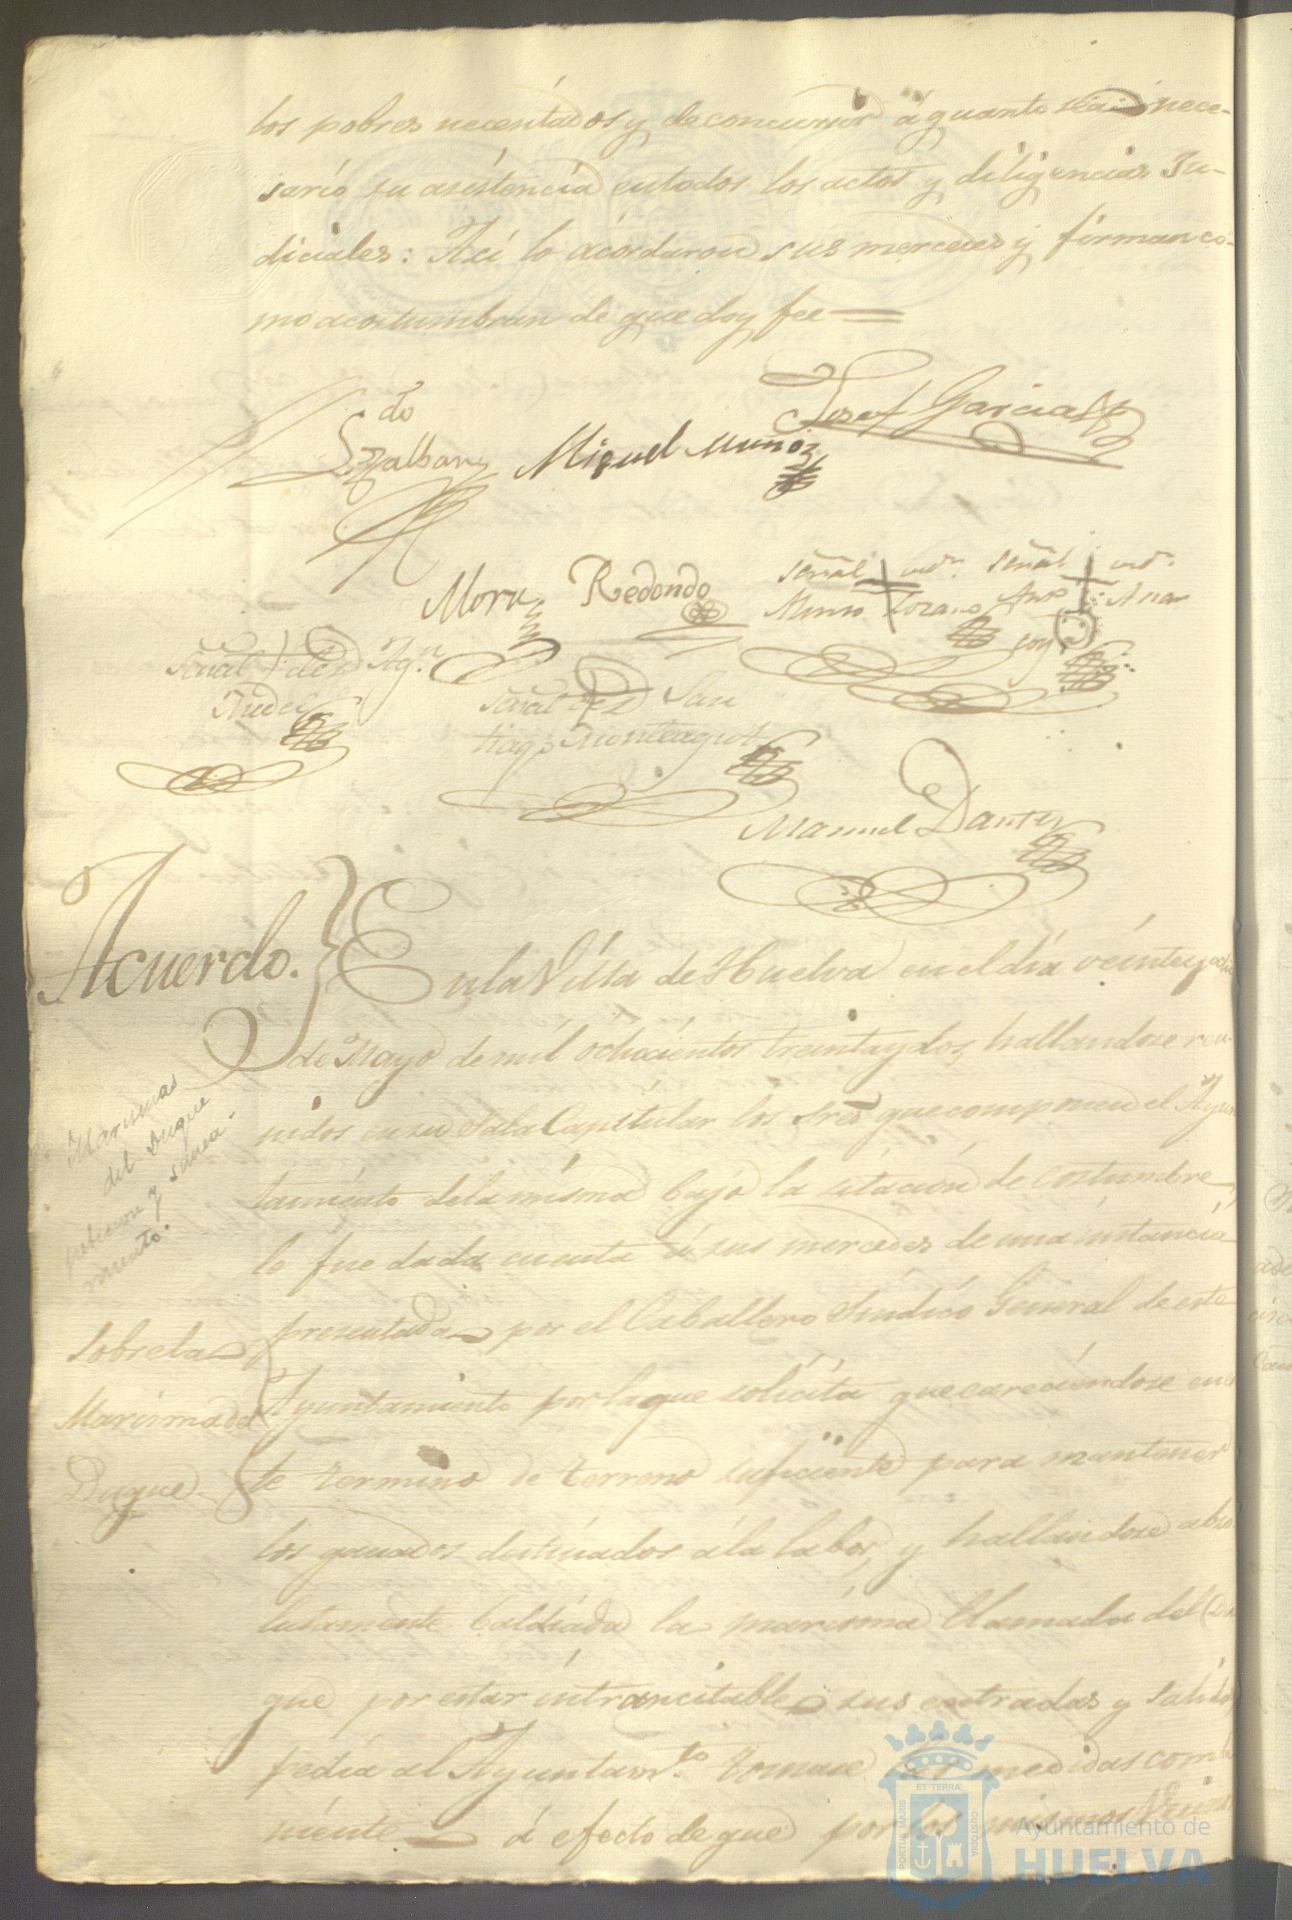 los pobres necesitados y de concurrir á quanto sea nece-
sario su asistencia en todos los actos y diligencias Ju-
diciales: Así lo acordaron sus mercedes y firman co-
mo acostumbran de que doy fee =
Josef Garcia
Miguel Muñoz
Mora Redondo
señal señal
Lozano
señal de Agn
señal de San
tiago Monteagudo
Manuel Dante
Acuerdo. En la Villa de Huelva en el día veinte y ocho
de Mayo de mil ochocientos treinta y dos, hallandose reu-
nidos en su Sala Capitular los Sres que componen el Ayun
tamiento de la misma bajo la citacion de costumbre,
Marismas
del Duque
peticion y
lo fue dada cuenta á sus mercedes de una instancia
presentada por el Caballero Sindico General de este
Sobre la
Ayuntamiento por la que solicita que careciendose en es
Marisma del
te termino de terreno suficiente para mantener
Duque
los ganados destinados á la labor, y hallandose abso
lutamente baldiada la marisma llamada del Du
que por estar intrancitable sus entradas y salidas
pedia al Ayuntamto tomase las medidas combe
niente á efecto de que por los mismos Vecin
PORTUS MARIS ET TERRÆ CUSTODIA
Ayuntamiento de
HUELVA